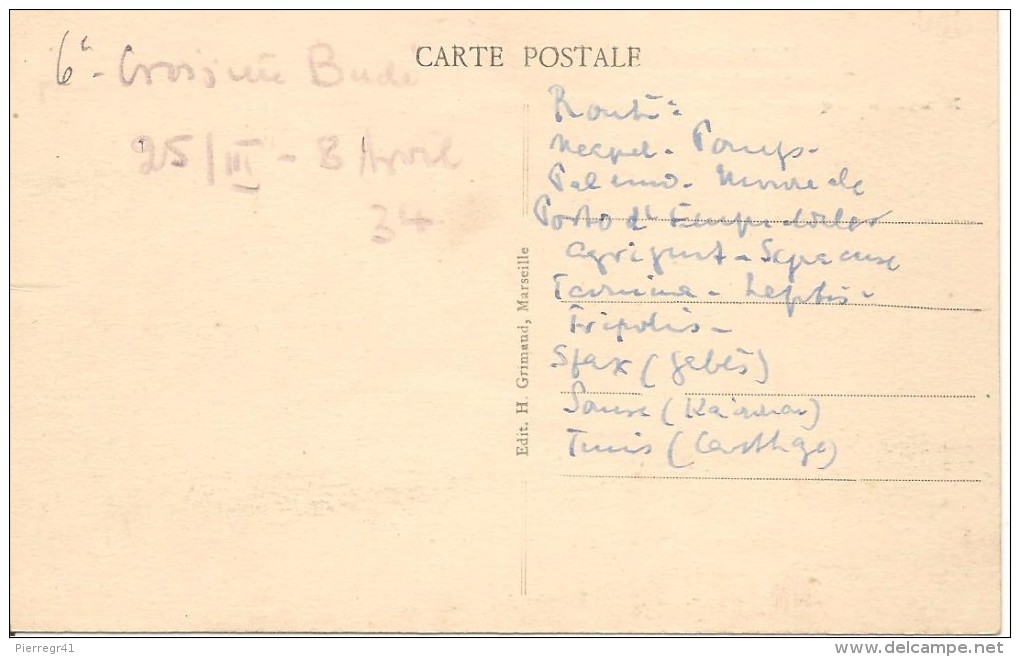 CARTE POSTALE
6e - Croisière Budé
25/III - 8 Avril
34
Edit. H. Grimaud, Marseille
Route:
Neapel - Pompj -
Palermo - Monreale
Porto d'Empedocles
Agrigent - Syracuse
Taormina - Leptis -
Tripolis -
Sfax (Gabès)
Sousse (Kairouan)
Tunis (Carthage)
Pierregr41
delcampe.net